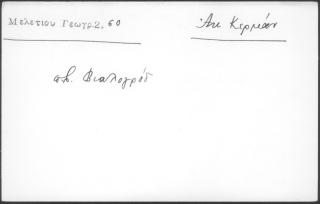 Μελετίου Γεωγρ.2, 60
Ἀκ Κερμάν
πβ. Φιαλογράδ